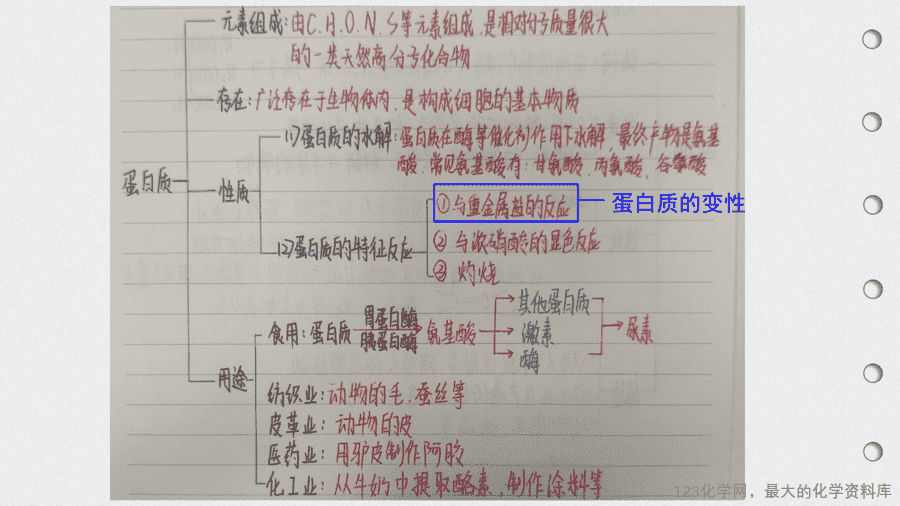 元素组成:由C.H.O.N.S等元素组成,是相对分子质量很大
的一类天然高分子化合物
存在:广泛存在于生物体内,是构成细胞的基本物质
蛋白质
性质
(1)蛋白质的水解:蛋白质在酶等催化剂作用下水解,最终产物是氨基
酸,常见氨基酸有:甘氨酸,丙氨酸,谷氨酸
(2)蛋白质的特征反应
①与重金属盐的反应
蛋白质的变性
②与浓硝酸的显色反应
③灼烧
用途
食用:蛋白质
胃蛋白酶
胰蛋白酶
氨基酸
其他蛋白质
激素
酶
尿素
纺织业:动物的毛,蚕丝等
皮革业:动物的皮
医药业:用驴皮制作阿胶
化工业:从牛奶中提取酪素,制作涂料等
123化学网,最大的化学资料库